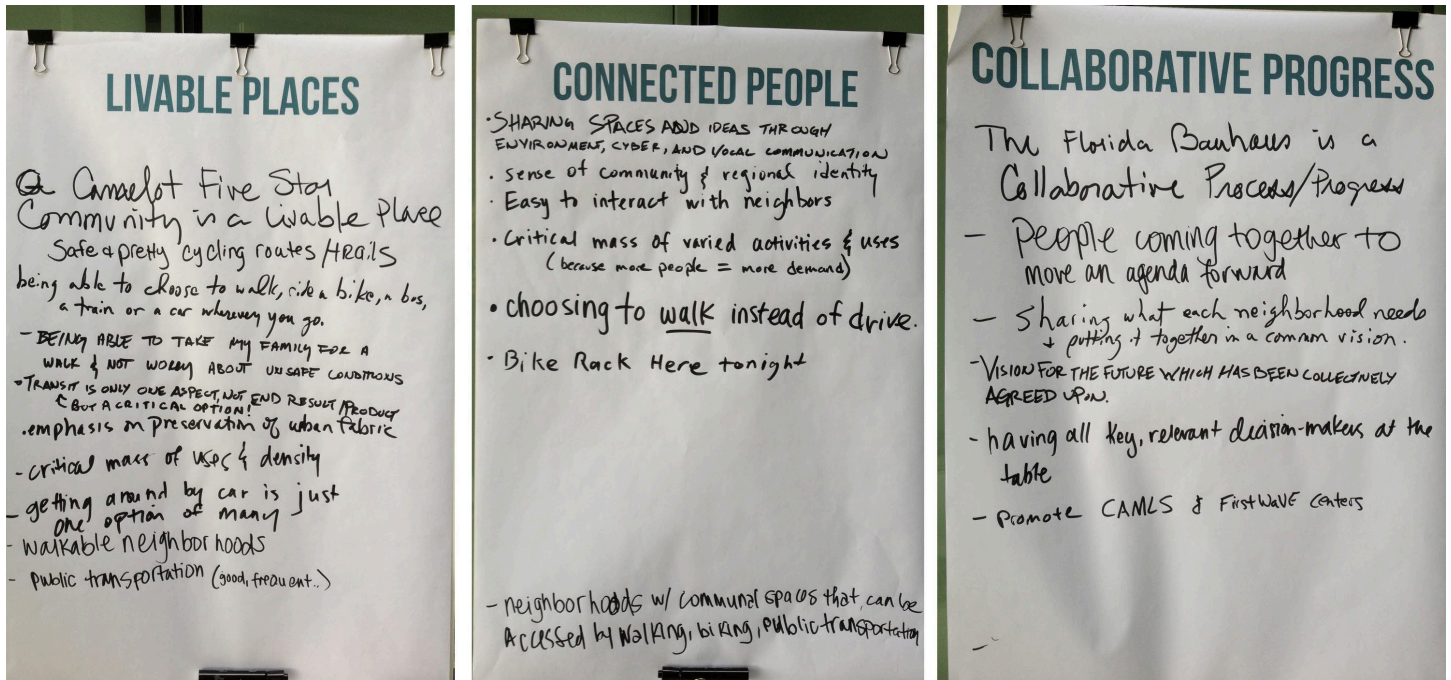 LIVABLE PLACES
a Camelot Five Star
Community is a livable Place
Safe & pretty cycling routes/trails
being able to choose to walk, ride a bike, a bus,
a train or a car wherever you go.
- BEING ABLE TO TAKE MY FAMILY FOR A
WALK & NOT WORRY ABOUT UNSAFE CONDITIONS
• TRANSIT IS ONLY ONE ASPECT, NOT END RESULT/PRODUCT
BUT A CRITICAL OPTION!
. emphasis on preservation of urban fabric
- critical mass of uses & density
- getting around by car is just
one option of many
- walkable neighborhoods
- public transportation (good, frequent..)
CONNECTED PEOPLE
• SHARING SPACES AND IDEAS THROUGH
ENVIRONMENT, CYBER, AND VOCAL COMMUNICATION
. sense of community & regional identity
. Easy to interact with neighbors
• Critical mass of varied activities & uses
(because more people = more demand)
• choosing to walk instead of drive.
• Bike Rack Here tonight
- neighborhoods w/ communal spaces that can be
Accessed by walking, biking, public transportation
COLLABORATIVE PROGRESS
The Florida Bauhaus is a
Collaborative Process/Progress
- People coming together to
move an agenda forward
- Sharing what each neighborhood needs
+ putting it together in a common vision.
- VISION FOR THE FUTURE WHICH HAS BEEN COLLECTIVELY
AGREED UPON.
- having all key, relevant decision-makers at the
table
- Promote CAMLS & FirstWaVE Centers
-